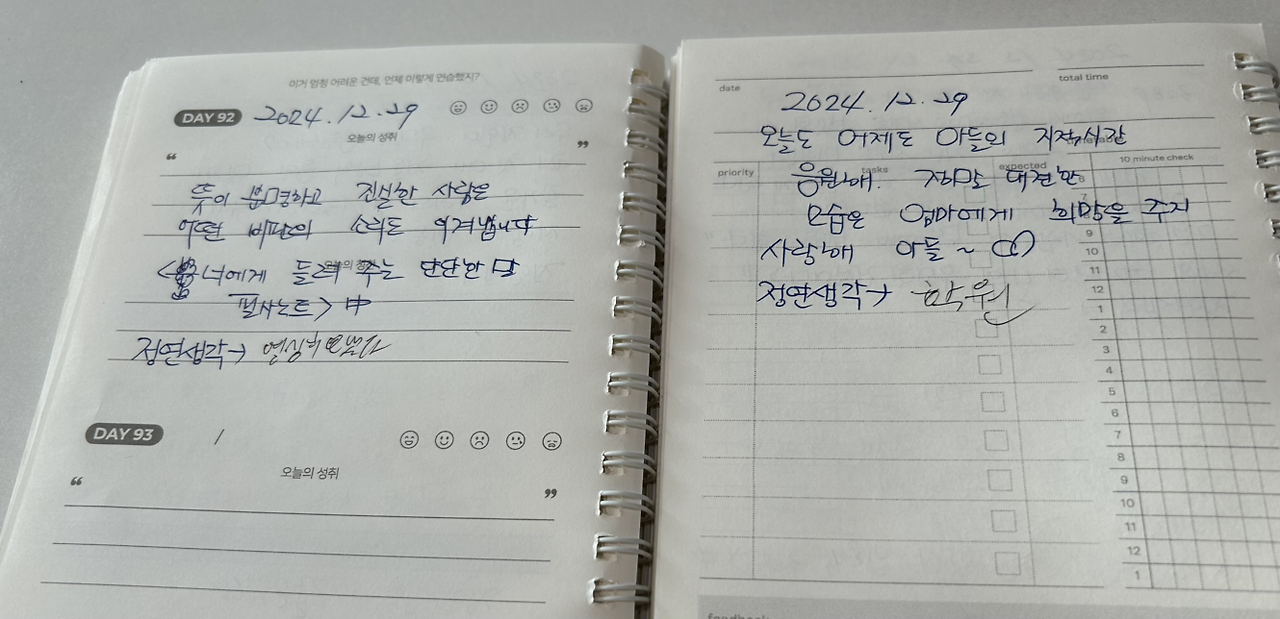 이거 엄청 어려운 건데, 언제 이렇게 연습했지?
DAY 92 2024.12.29
오늘의 성취
“ ”
뜻이 분명하고 진실한 사람은
어떤 비판의 소리도 이겨냅니다
너에게 들려 주는 단단한 말
필사노트> 中
정연생각→
DAY 93 /
오늘의 성취
“ ”
date
total time
2024.12.29
오늘도 어제도 아들의 시간
priority tasks expected 10 minute check
응원해. 대견한
모습은 엄마에게 희망을 주지
사랑해 아들~
정연생각→ 학원
8
9
10
11
12
1
2
3
4
5
6
7
8
9
10
11
12
1
feedback